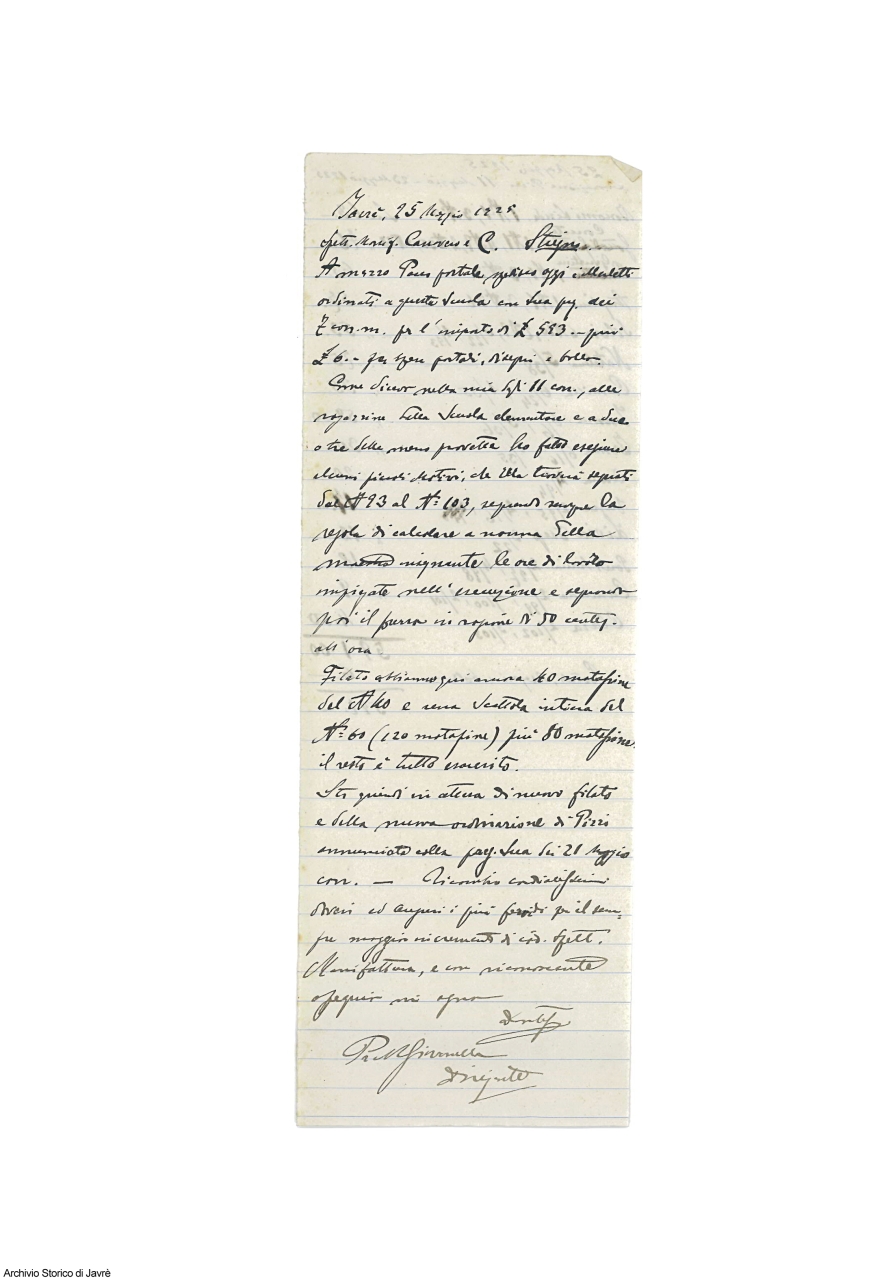 Javrè, 25 Maggio 1925
Spett. Manif. Canovero e C.
A mezzo Pacco postale spedisco oggi i Merletti
ordinati a questa Scuola con Sua preg. dei
7 corr. m. per l'importo di £ 593 – più
£ 6. – per spese postali, disegni e bollo.
Come dicevo nella mia degli 11 corr., alle
ragazzine della Scuola elementare e a due
o tre delle meno provette ho fatto eseguire
alcuni piccoli Motivi, che Ella troverà segnati
dal N 93 al N° 103, seguendo sempre la
regola di calcolare a norma della
maestra insegnante le ore di lavoro
impiegate nell'esecuzione e segnando
poi il prezzo in ragione di 50 centes.
all'ora
Filato abbiamo qui ancora 40 matassine
del N 40 e una Scattola intiera del
N° 60 (120 matassine) più 80 matassine.
il resto è tutto esaurito.
Sto quindi in attesa di nuovo filato
e della nuova ordinazione di Pizzi
annunciata colla preg. Sua dei 21 Maggio
corr. — Ricambio cordialissimi
doveri ed auguri i più fervidi per il sem-
pre maggior incremento di cod. Spett.
Manifattura, e con riconoscente
ossequio mi segno
Dirigente
Archivio Storico di Javrè